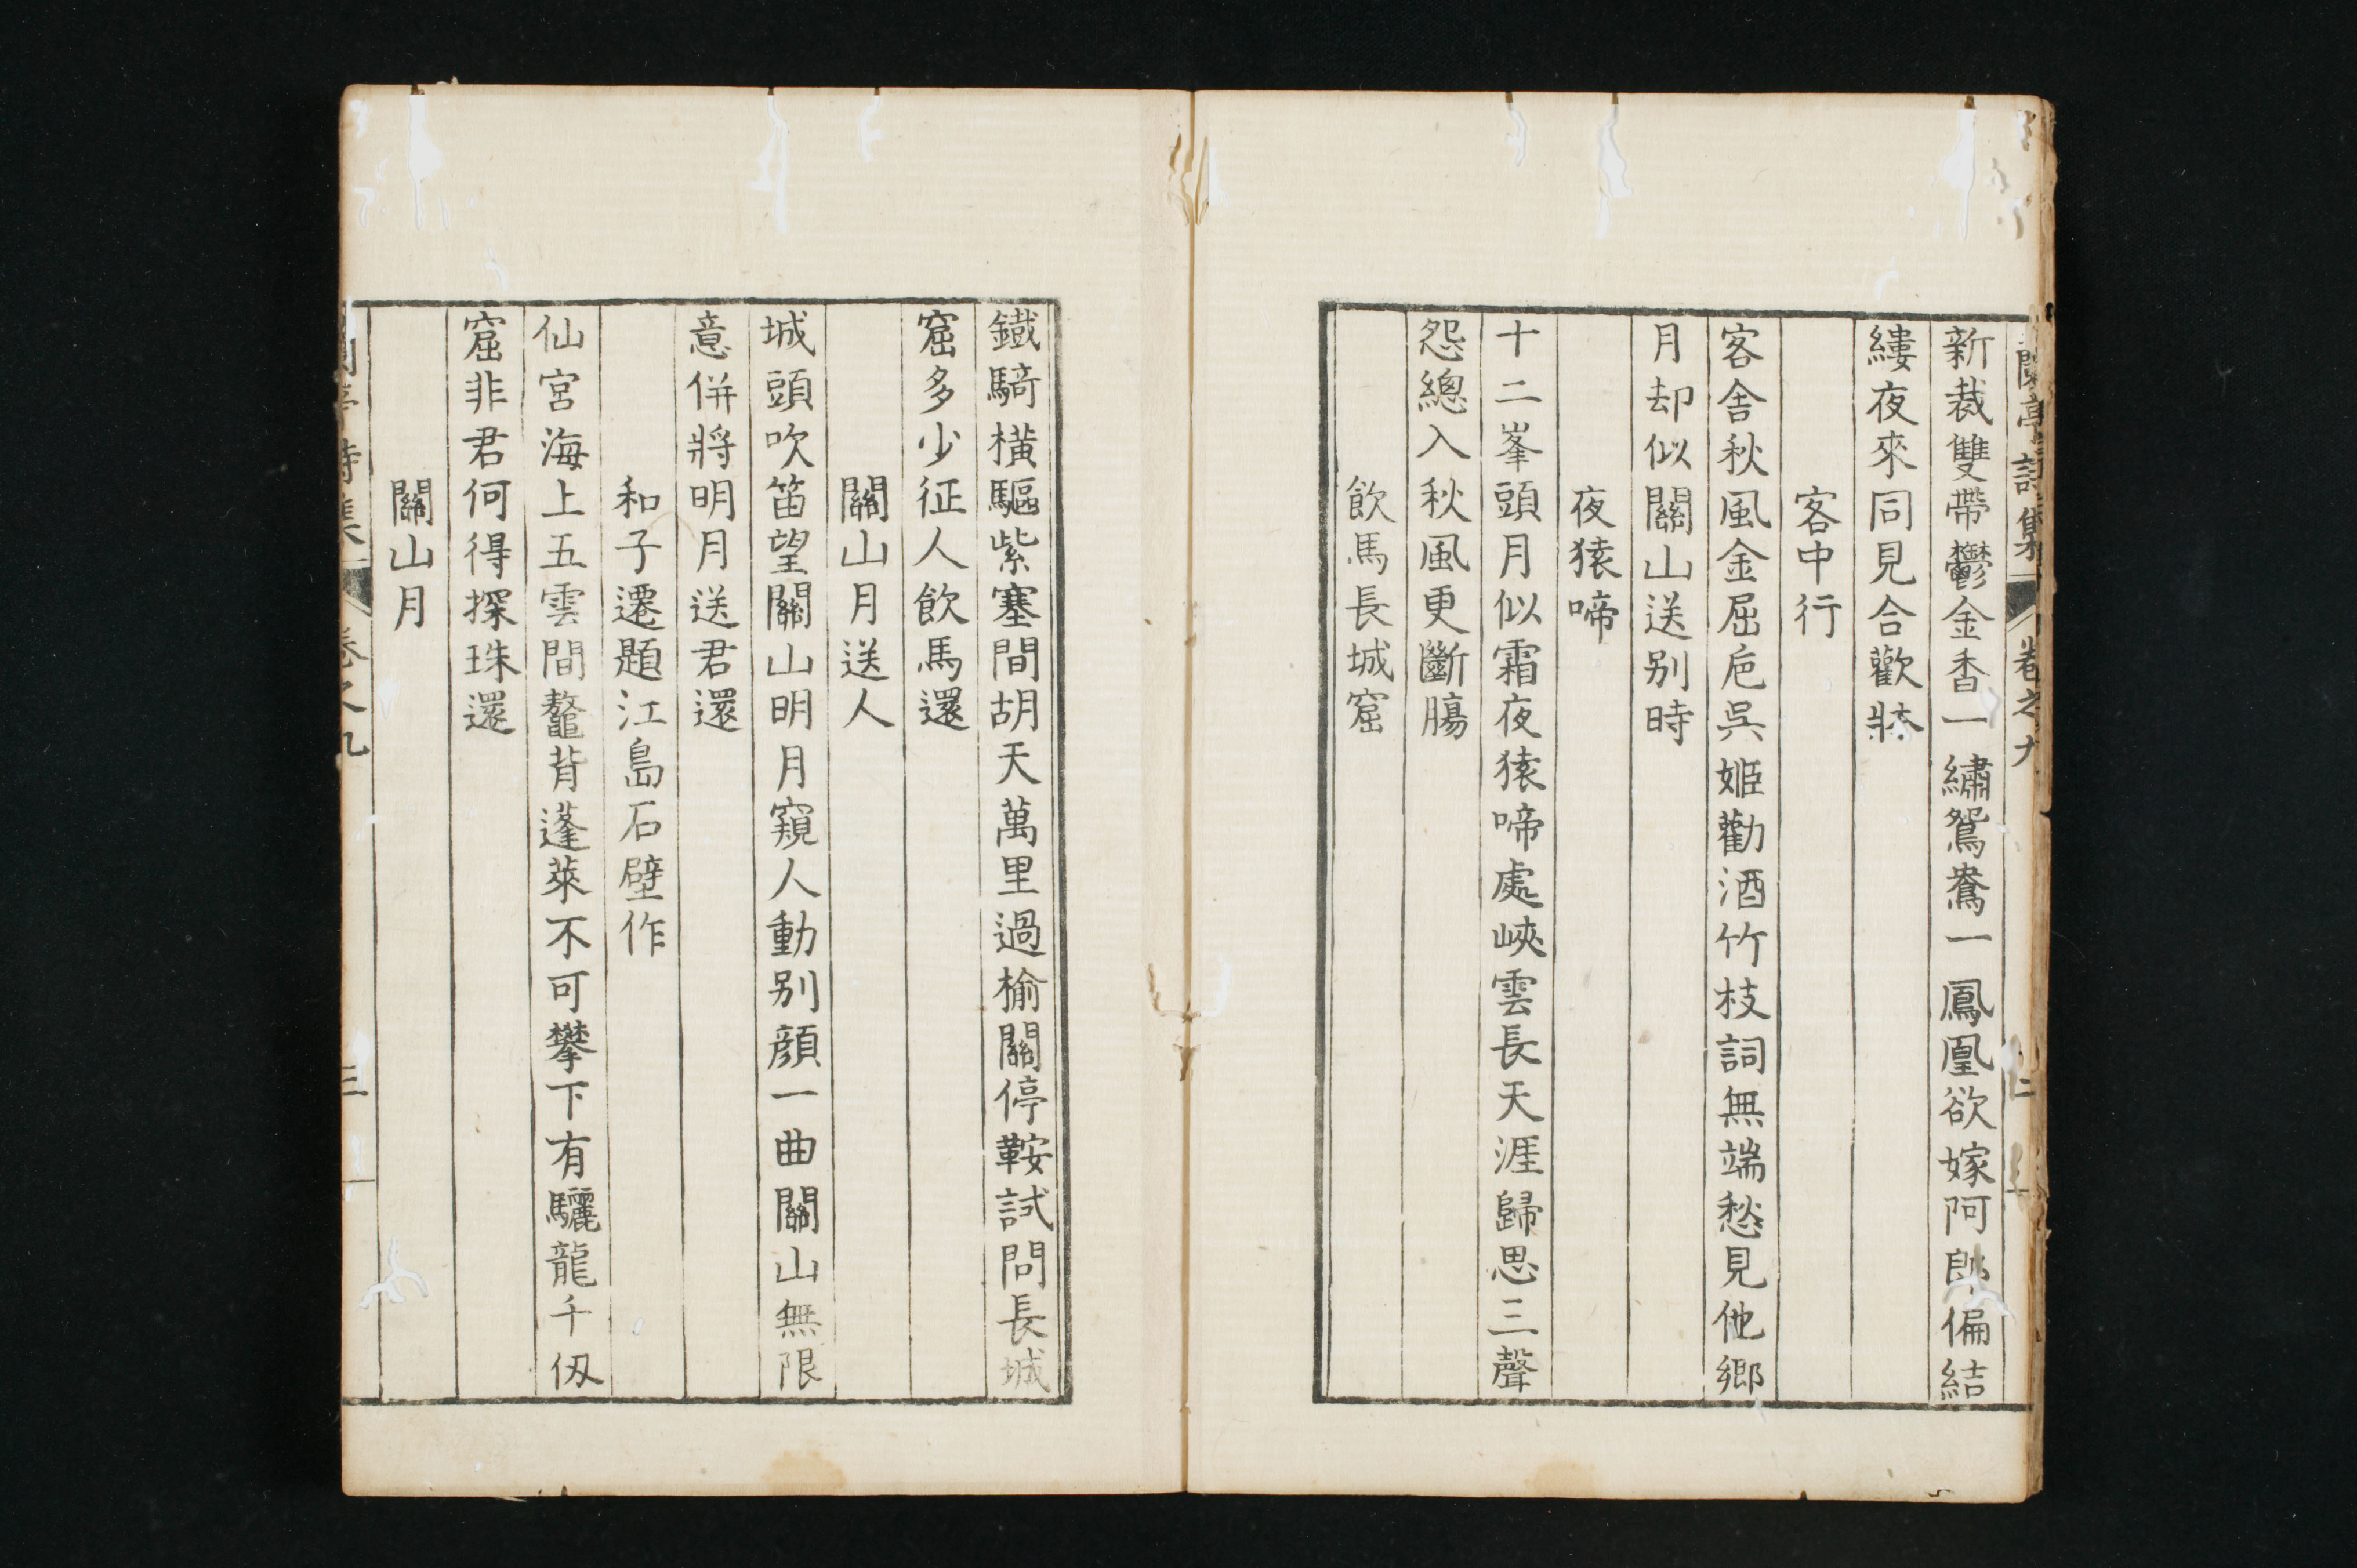 蘭亭詩集 卷之九 二
新裁雙帶鬱金香一繡鴛鴦一鳳凰欲嫁阿郎偏結
縷夜來同見合歡牀
客中行
客舍秋風金屈卮吳姬勸酒竹枝詞無端愁見他鄉
月却似關山送別時
夜猿啼
十二峯頭月似霜夜猿啼處峽雲長天涯歸思三聲
怨總入秋風更斷膓
飲馬長城窟
鐵騎橫驅紫塞間胡天萬里過榆關停鞍試問長城
窟多少征人飲馬還
關山月送人
城頭吹笛望關山明月窺人動別顔一曲關山無限
意併將明月送君還
和子遷題江島石壁作
仙宮海上五雲間鼇背蓬萊不可攀下有驪龍千仭
窟非君何得探珠還
關山月
詩集 卷之九 三